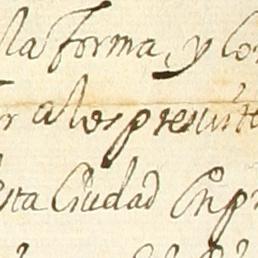 la forma, y Co
r a los presente
sta Ciudad En p